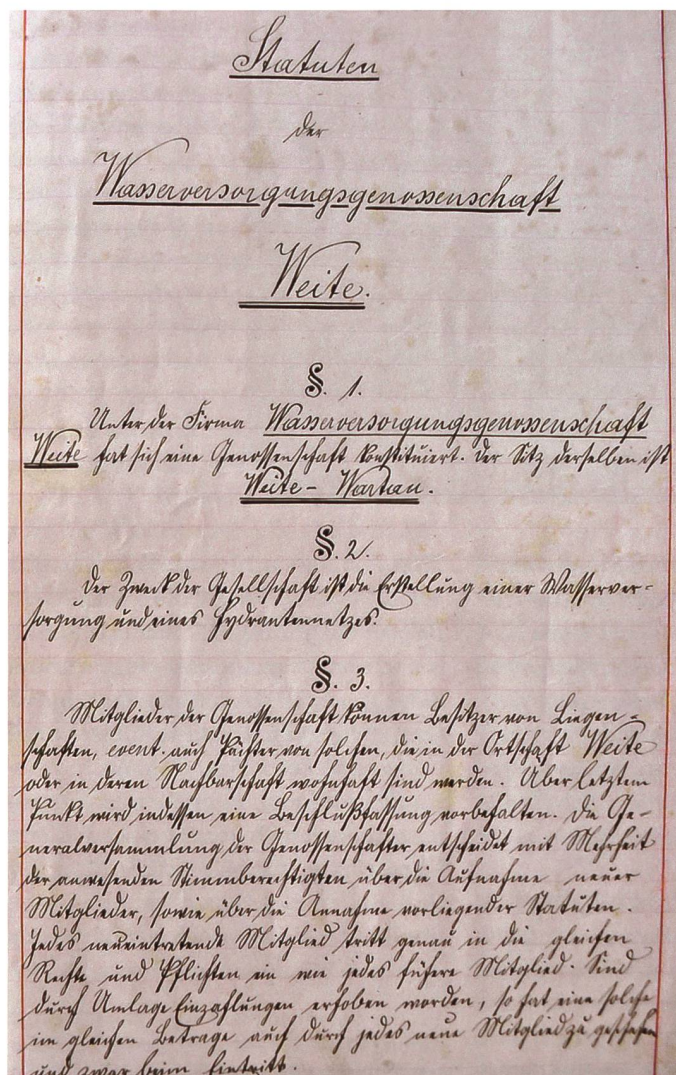 Statuten
der
Wasserversorgungsgenossenschaft
Weite.
§. 1.
Unter der Firma Wasserversorgungsgenossenschaft
Weite hat sich eine Genossenschaft konstituiert. Der Sitz derselben ist
Weite - Wartau.
§. 2.
Der Zweck der Gesellschaft ist die Erstellung einer Wasserver-
sorgung und eines Hydrantennetzes.
§. 3.
Mitglieder der Genossenschaft können Besitzer von Liegen-
schaften, event. auch Pächter von solchen, die in der Ortschaft Weite
oder in deren Nachbarschaft wohnhaft sind werden. Über letztern
Punkt wird indessen eine Beschlußfassung vorbehalten. Die Ge-
neralversammlung der Genossenschafter entscheidet mit Mehrheit
der anwesenden Stimmberechtigten über die Aufnahme neuer
Mitglieder, sowie über die Annahme vorliegender Statuten.
Jedes neueintretende Mitglied tritt genau in die gleichen
Rechte und Pflichten ein wie jedes frühere Mitglied. Sind
durch Umlage Einzahlungen erhoben worden, so hat eine solche
im gleichen Betrage auch durch jedes neue Mitglied zu geschehen
und zwar beim Eintritt.